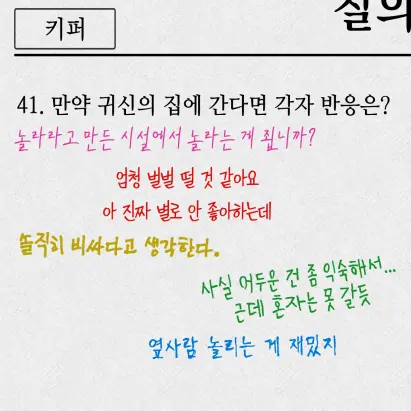 키퍼
질의
41. 만약 귀신의 집에 간다면 각자 반응은?
놀라라고 만든 시설에서 놀라는 게 죕니까?
엄청 벌벌 떨 것 같아요
아 진짜 별로 안 좋아하는데
솔직히 비싸다고 생각한다.
사실 어두운 건 좀 익숙해서...
근데 혼자는 못 갈듯
옆사람 놀리는 게 재밌지